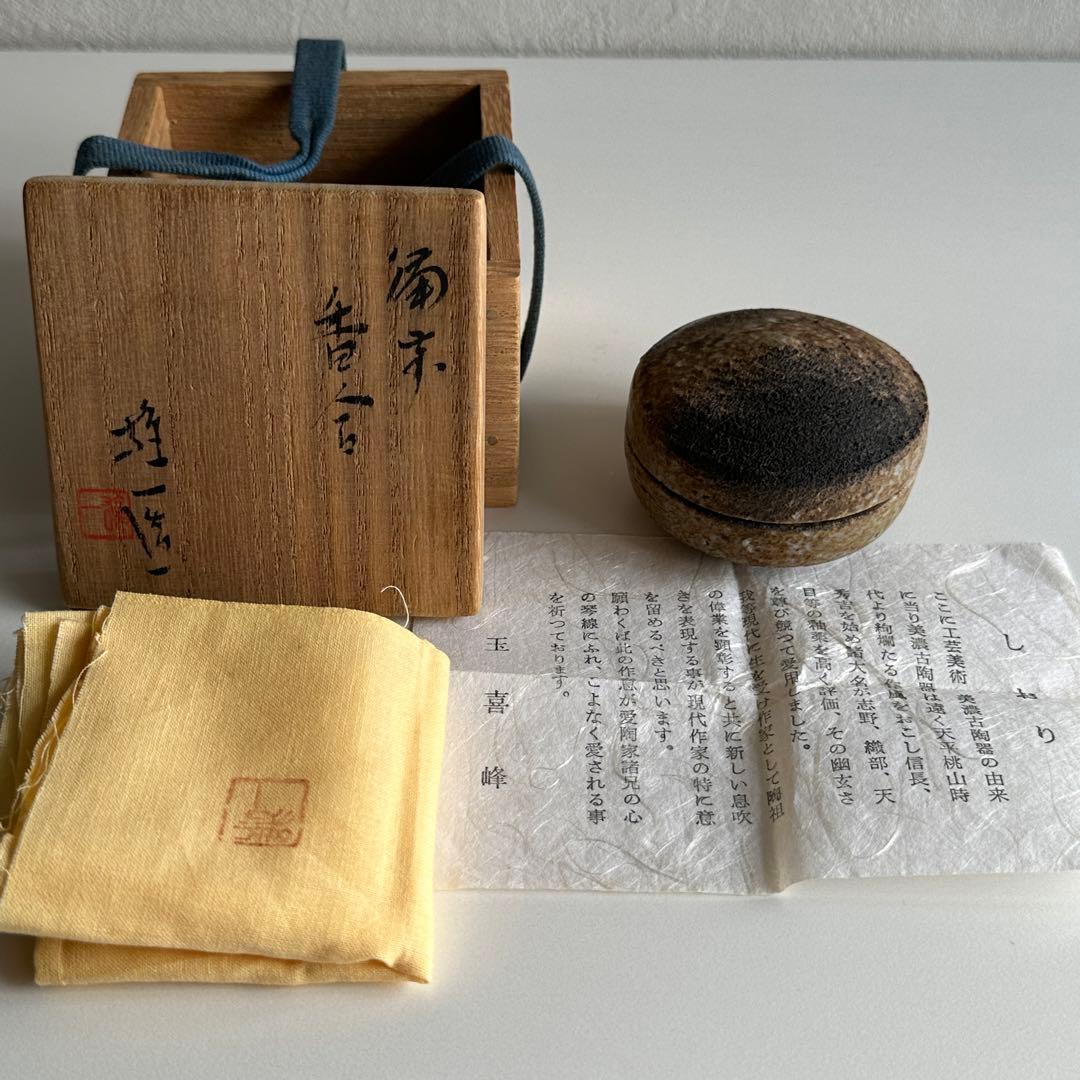 備前
香合
雄一造
しおり
ここに工芸美術　美濃古陶器の由来
に当り美濃古陶器は遠く天平桃山時
代より絢爛たる作風をおこし信長、
秀吉を始め諸大名が志野、織部、天
目等の釉薬を高く評価、その幽玄さ
を尊び競つて愛用しました。
我等現代に生を受け作家として陶祖
の偉業を顕彰すると共に新しい息吹
きを表現する事が現代作家の特に意
を留めるべきと思います。
願わくば此の作意が愛陶家諸兄の心
の琴線にふれ、こよなく愛される事
を祈つております。
玉喜峰